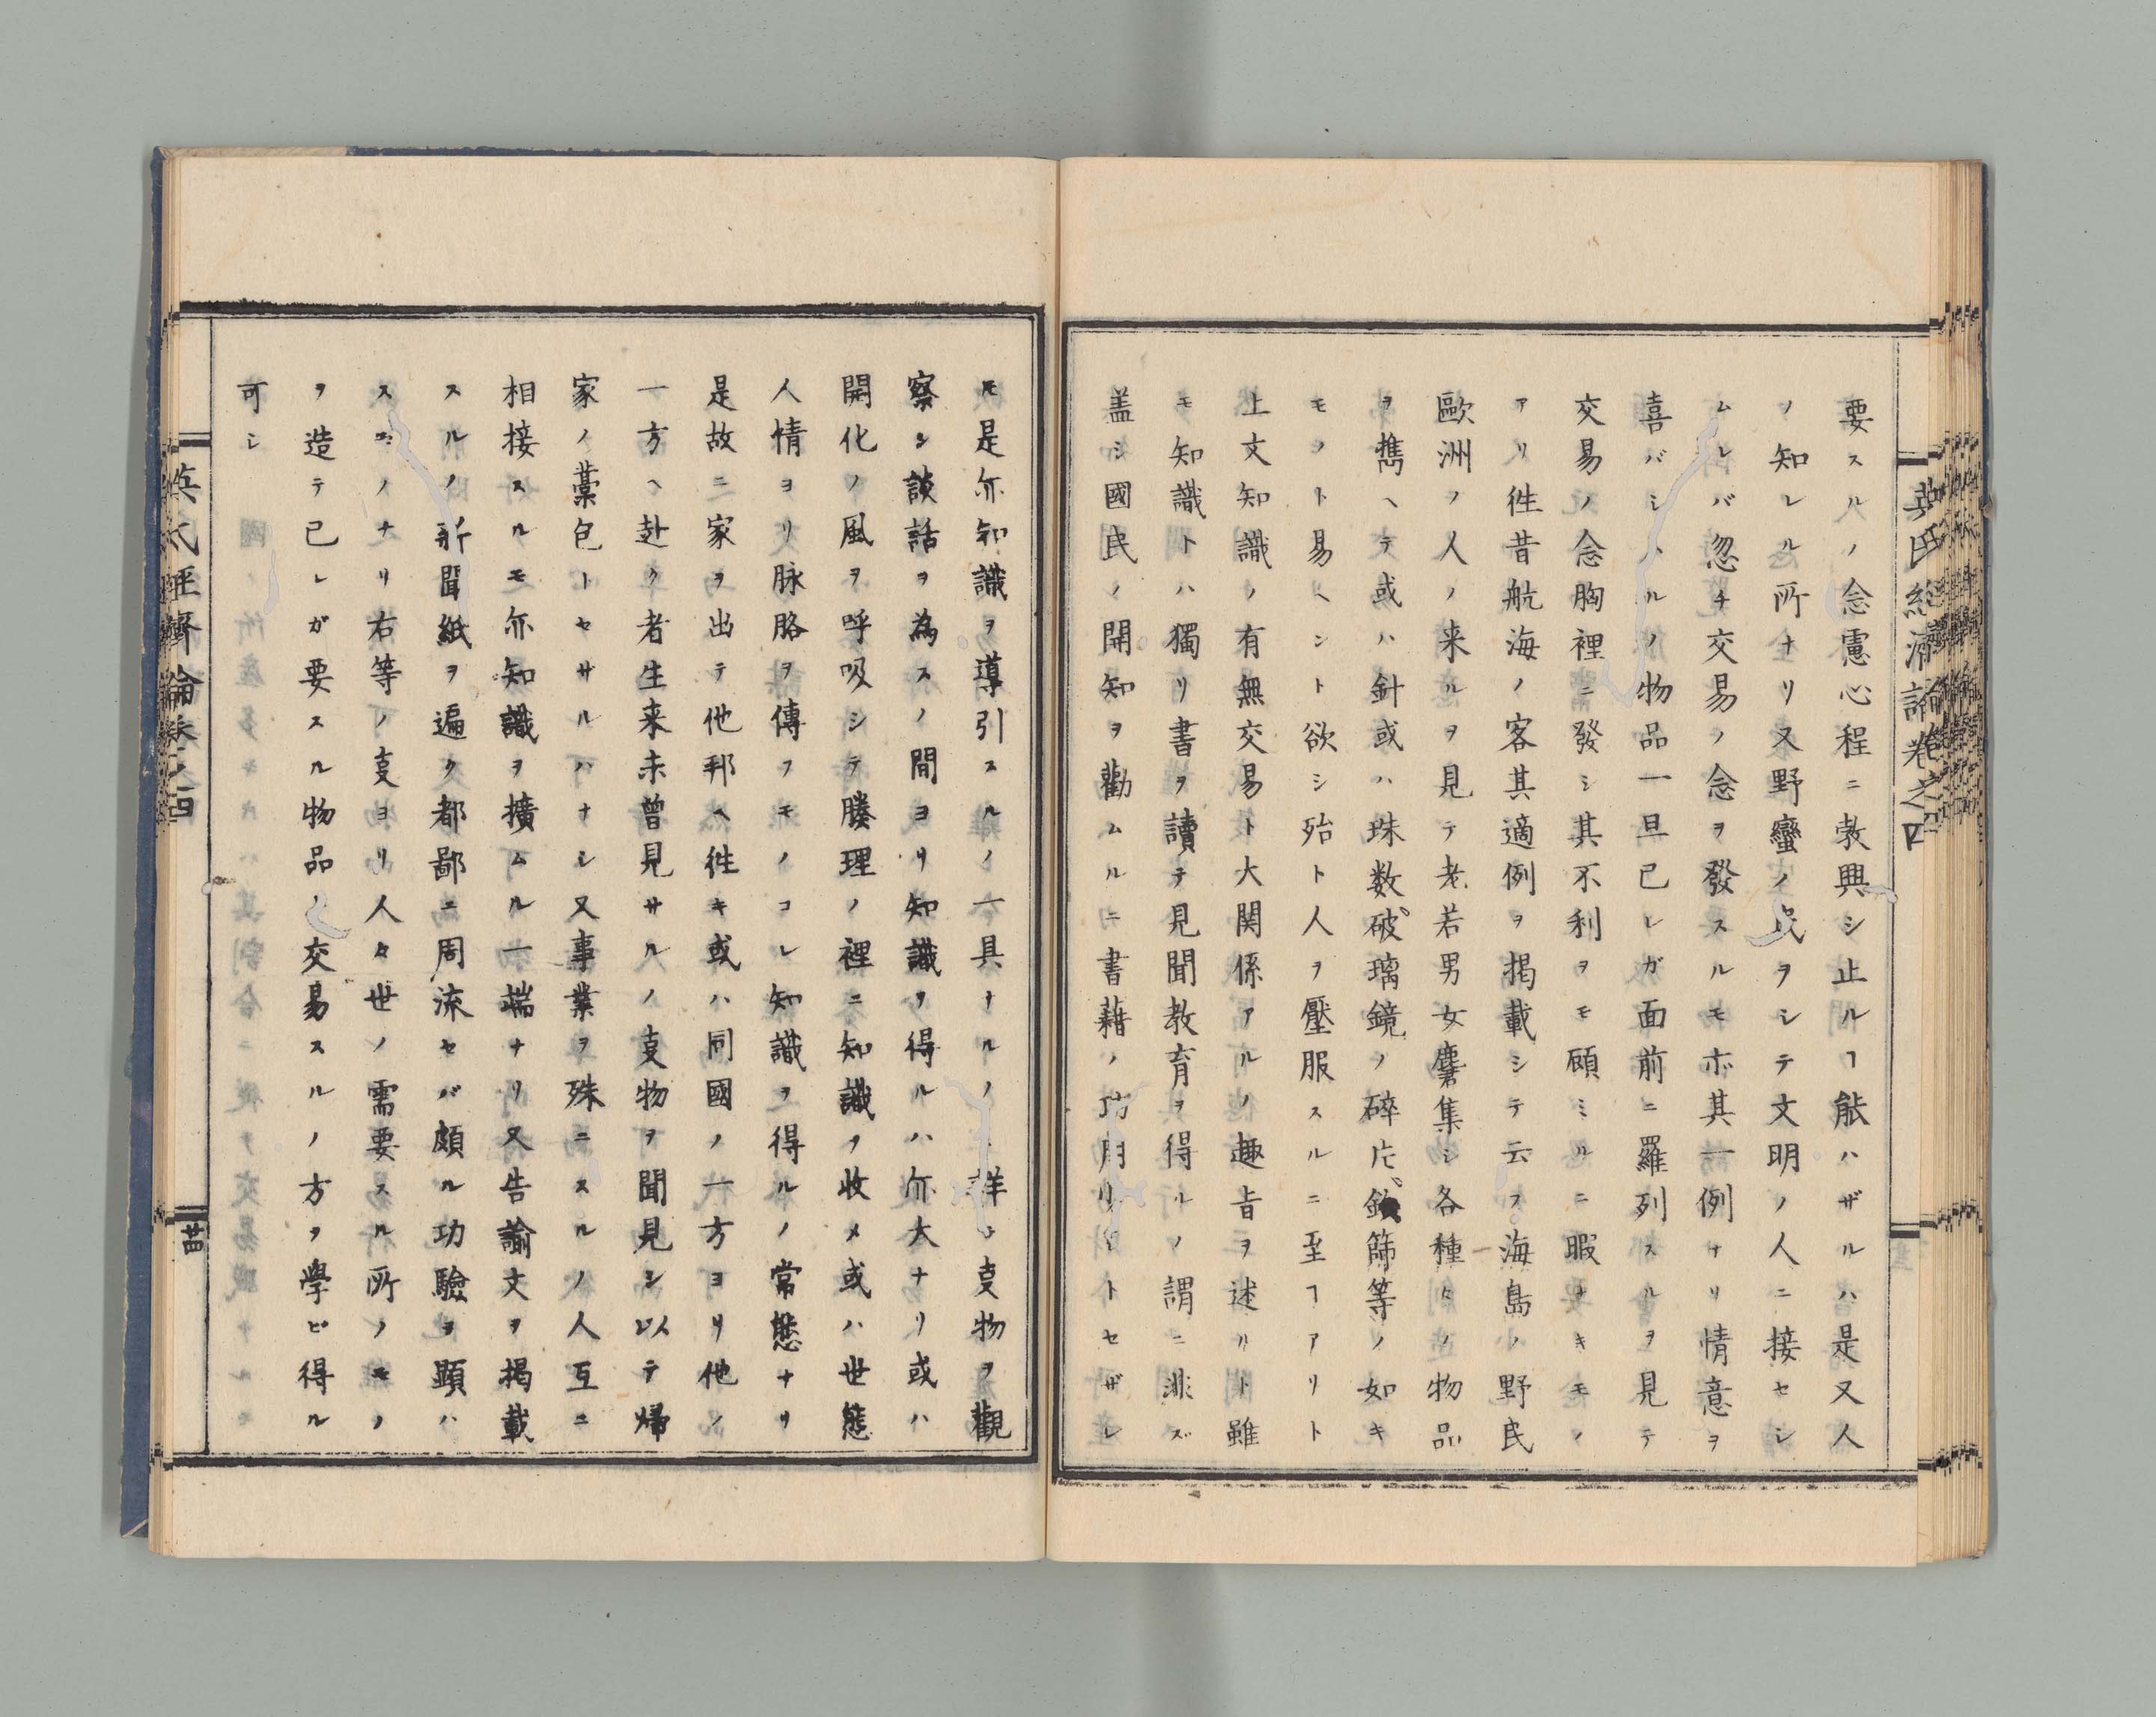 英氏經濟論卷之四
要スルノ念慮心程ニ敦興シ止ルヿ能ハザルハ是又人
ノ知レル所ナリ又野蠻ノ民ヲシテ文明ノ人ニ接セシ
ムレバ忽チ交易ノ念ヲ發スルモ亦其一例ナリ情意ヲ
喜バシムルノ物品一旦已レガ面前ニ羅列スルヲ見テ
交易ノ念胸裡ニ發シ其不利ヲモ顧ミルニ暇ナキモノ
アリ徃昔航海ノ客其適例ヲ掲載シテ云フ海島ノ野民
歐洲ノ人ノ来ルヲ見テ老若男女麕集シ各種ノ物品
ヲ携ヘテ或ハ針或ハ珠数破璃鏡ノ碎片鈸篩等ノ如キ
モノト易ヘント欲シ殆ト人ヲ壓服スルニ至ルヿアリト
上文知識ノ有無交易ト大関係アルノ趣旨ヲ述ルト雖
モ知識トハ獨リ書ヲ讀テ見聞教育ヲ得ルノ謂ニ非ズ
盖シ國民ノ開知ヲ勸ムルニ書藉ノ功用リトセザレ
モ是亦知識ヲ導引スルノ一具ナルノミ詳ニ㕝物ヲ觀
察シ談話ヲ為スノ間ヨリ知識ヲ得ルハ亦大ナリ或ハ
開化ノ風ヲ呼吸シテ腠理ノ裡ニ知識ヲ收メ或ハ世態
人情ヨリ脉胳ヲ傳フモノコレ知識ヲ得ルノ常態ナリ
是故ニ家ヲ出テ他邦ヘ徃キ或ハ同國ノ一方ヨリ他ノ
一方ヘ赴ク者生来未曾見サルノ㕝物ヲ聞見シ以テ帰
家ノ藁包トセサルハナシ又事業ヲ殊ニスルノ人互ニ
相接スルモ亦知識ヲ擴ムル一端ナリ又告諭文ヲ掲載
スルノ新聞紙ヲ遍ク都鄙ニ周流セバ頗ル功驗ヲ顕ハ
スモノナリ右等ノ㕝ヨリ人々世ノ需要スル所ノモノ
ヲ造テ已レガ要スル物品ノ交易スルノ方ヲ學ビ得ル
可シ
英氏經濟論卷之四
廿四